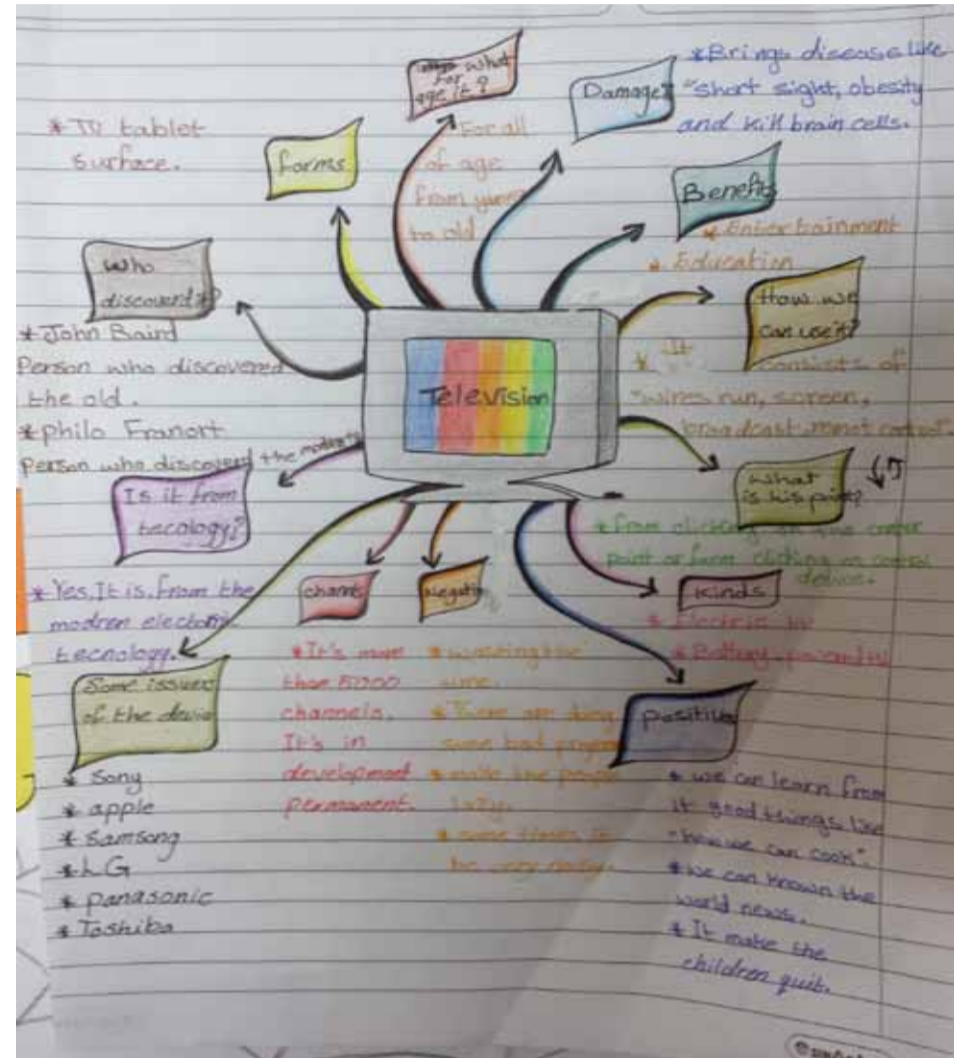 Television
what
For
age it?
For all
of age
from
to old
Damages
*Brings disease like
"short sight, obesity
and kill brain cells.
Benefits
* Entertainment
* Education
How we
can use it?
* It
consists of
"wires run, screen,
broadcast control".
What
is his point?
* from clicking on the
point or form clicking on control
device.
Kinds
* Electric
* Battery powered
positive
* we can learn from
it good things like
"how we can cook".
* we can known the
world news.
* It make the
children quit.
Negative
*
time.
* There are
some bad
* make the people
lazy.
* some times
be very noisy.
It's more
than 5000
channels.
It's in
development
permanent.
Some issues
of the device
* Sony
* apple
* Samsong
* LG
* panasonic
* Toshiba
Is it from
tecology?
* Yes, It is, from the
modren
tecnology.
Who
discoverd it?
* John Baird
Person who discovered
the old.
* philo
Person who discovered the
forms
* TV tablet
surface.